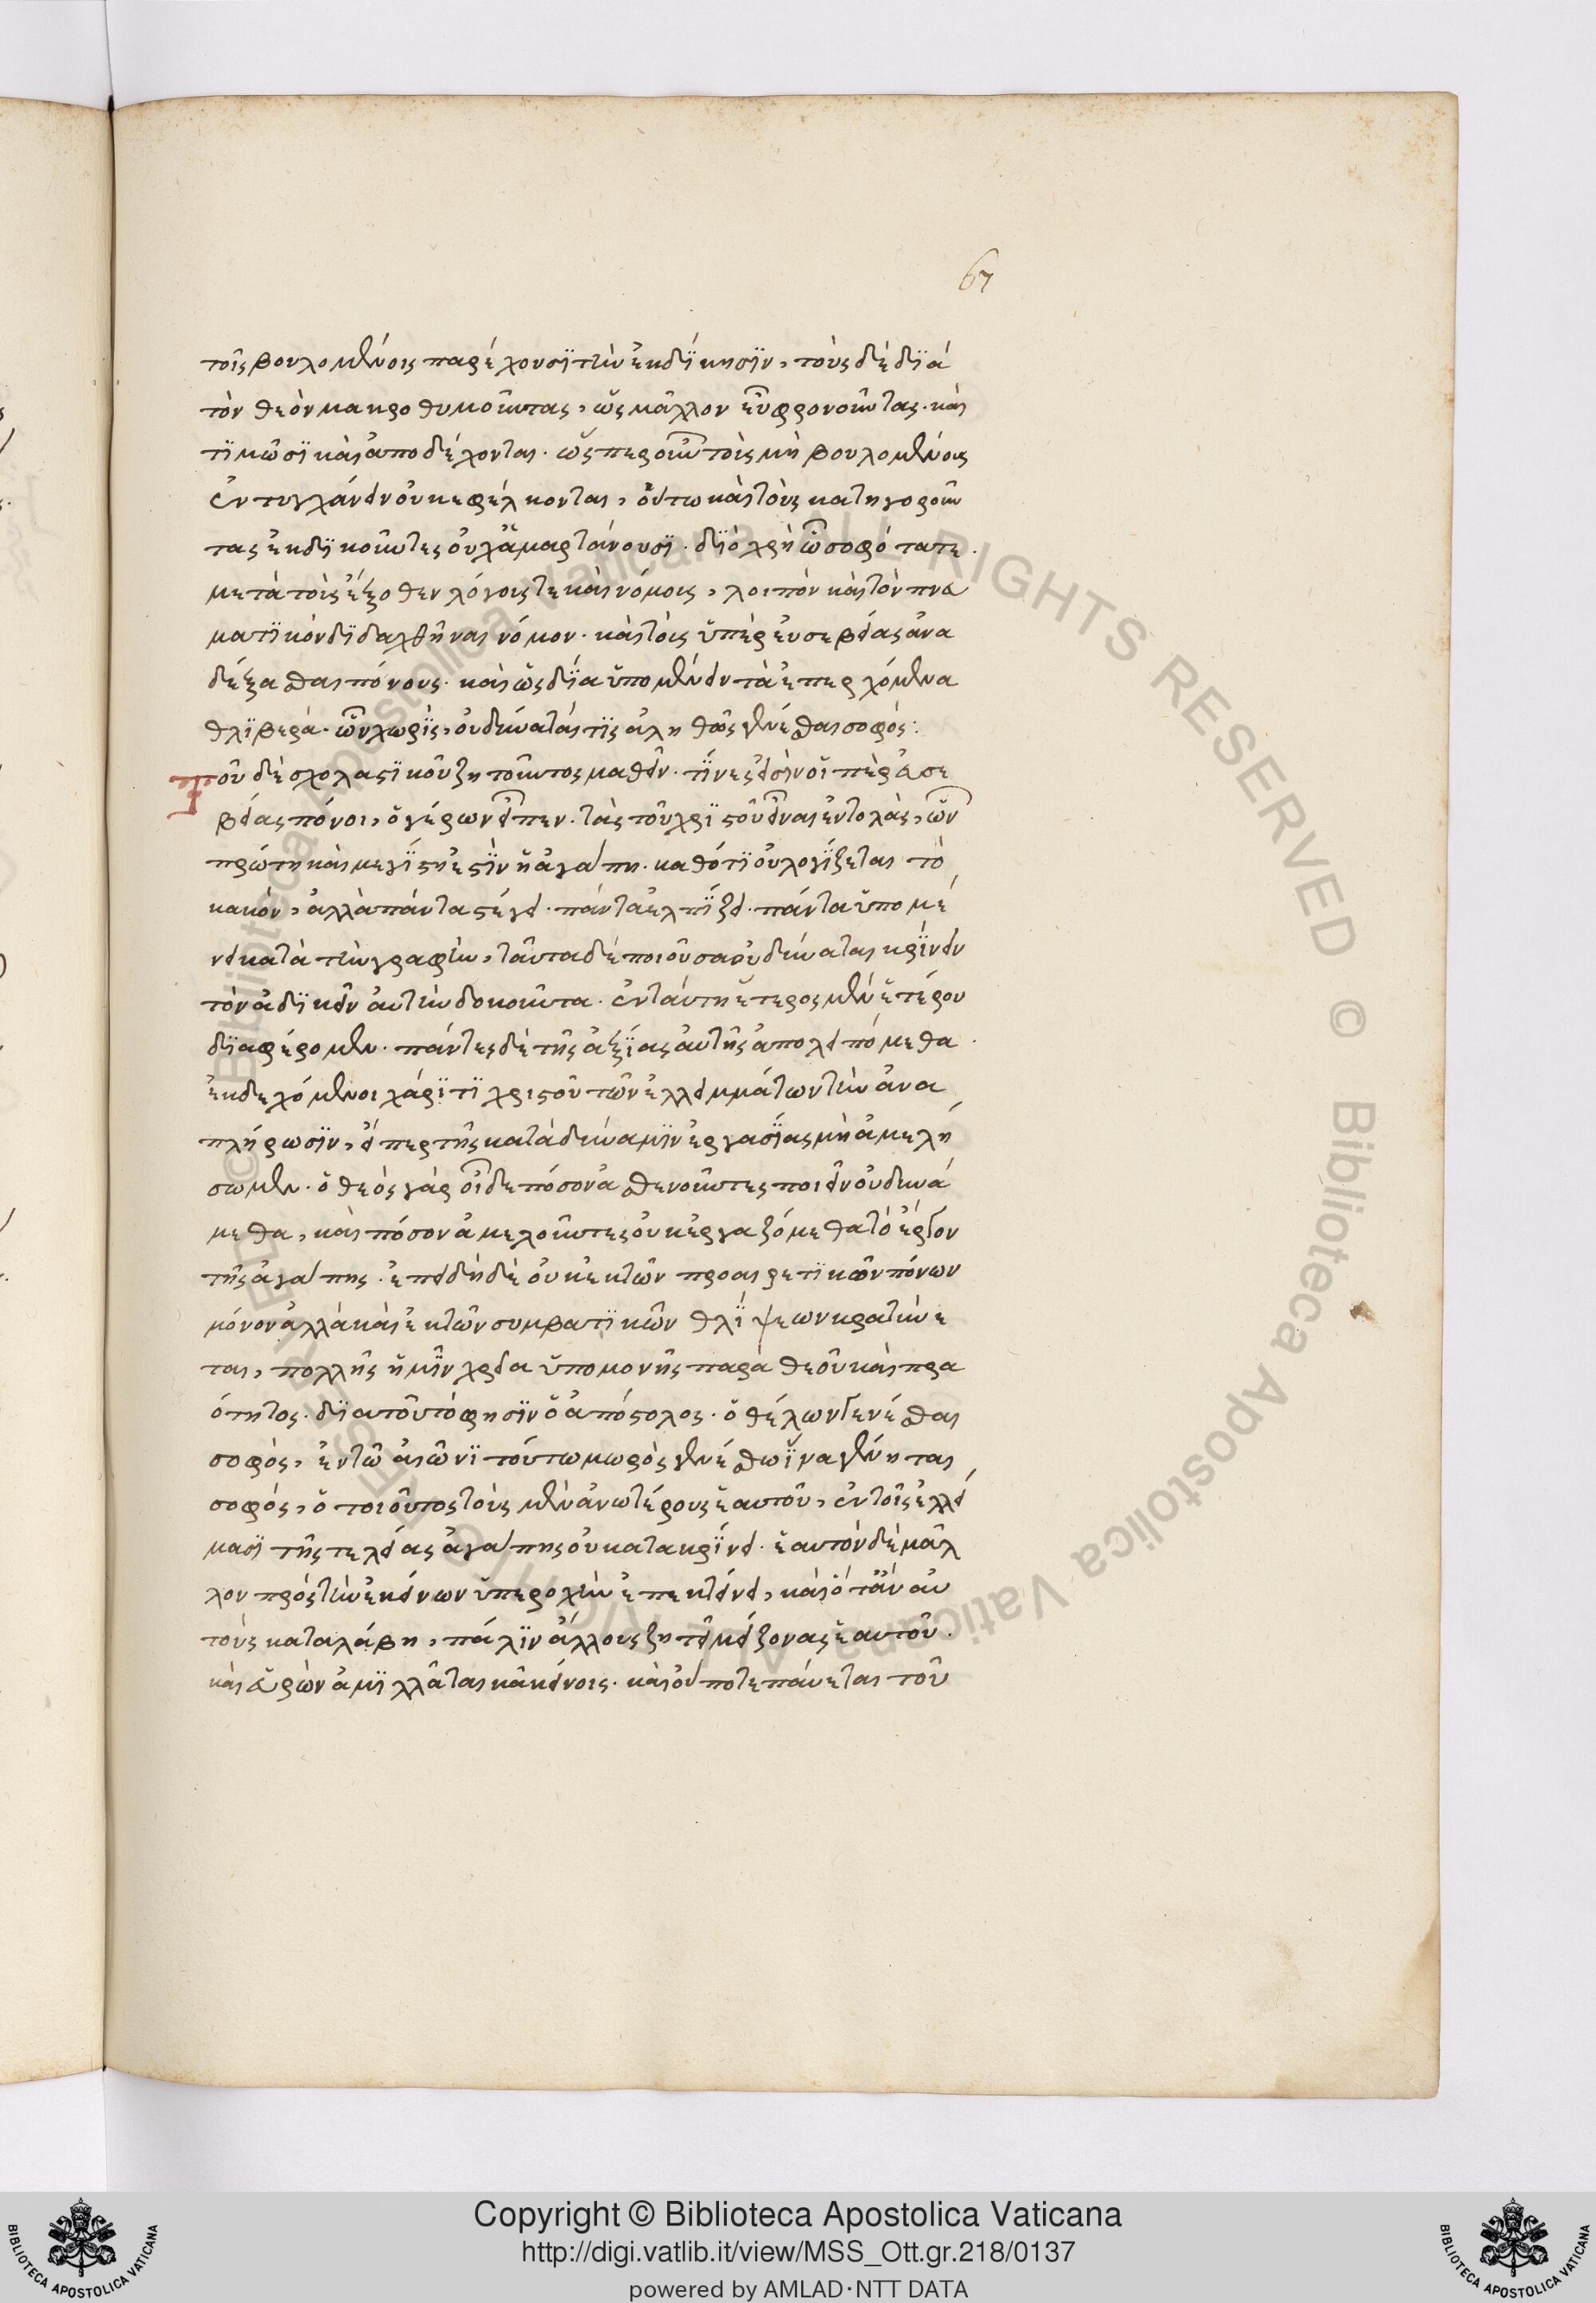 67
τοῖς βουλομένοις παρέχουσϊ τὴν ἐκδΐκησϊν, τοὺς δὲ δϊά
τὸν θεὸν μακροθυμοῦντας, ὡς μᾶλλον εὐφρονοῦντας. καὶ
τϊμῶσϊ καὶ ἀποδέχονται. ὥσπερ οὖν τοῖς μὴ βουλομένοις
ἐντυγχάνειν οὐκ ἐφέλκονται, οὕτω καὶ τοὺς κατηγοροῦν
τας ἐκδϊκοῦντες οὐχ ἁμαρτάνουσϊ. δϊὸ χρὴ ὦ σοφότατε.
μετὰ τοῖς ἔξοθεν λόγοις τε καὶ νόμοις, λοιπὸν καὶ τὸν πνευ
ματϊκὸν δϊδαχθῆναι νόμον. καὶ τοῖς ὑπὲρ εὐσεβείας ἀνα
δέξασθαι πόνους. καὶ ὡς δΐα ὑπομένειν τὰ ἐπερχόμενα
θλϊβερά. ὧν χωρὶς, οὐ δύναταί τϊς ἀληθῶς γενέσθαι σοφός:
Τοῦ δὲ σχολαστϊκοῦ ζητοῦντος μαθεῖν. τΐνες εἰσὶν οἱ ὑπὲρ εὐσε
βείας πόνοι, ὁ γέρων εἶπεν. τὰς τοῦ χρϊστοῦ εἶναι ἐντολὰς, ὧν
πρώτη καὶ μεγΐστη ἐστὶν ἡ ἀγάπη. καθότϊ οὐ λογΐζεται τὸ
κακόν, ἀλλὰ πάντα στέγει. πάντα ἐλπΐζει. πάντα ὑπομέ
νει κατὰ τὴν γραφὴν, ταῦτα δὲ ποιοῦσα οὐ δύναται κρΐνειν
τὸν ἀδϊκεῖν αὐτὴν δοκοῦντα. ἐν ταύτη ἕτερος μὲν ἑτέρου
δϊαφέρομεν. πάντες δὲ τῆς ἀξΐας αὐτῆς ἀπολειπόμεθα.
ἐκδεχόμενοι χάρϊτϊ χριστοῦ τῶν ἐλλειμμάτων τὴν ἀνα
πλήρωσϊν, εἴπερ τῆς κατὰ δύναμϊν ἐργασΐας μὴ ἀμελή
σωμεν. ὁ θεὸς γὰρ οἶδε πόσον ἀσθενοῦντες ποιεῖν οὐ δυνά
μεθα, καὶ πόσον ἀμελοῦντες οὐκ ἐργαζόμεθα τὸ ἔργον
τῆς ἀγάπης. ἐπειδὴ δὲ οὐκ ἐκ τῶν προαιρετϊκῶν πόνων
μόνον ἀλλὰ καὶ ἐκ τῶν συμβατϊκῶν θλΐψεων κρατύνε
ται, πολλῆς ἡμῖν χρεία ὑπομονῆς παρὰ θεοῦ καὶ πρα
ότητος. δϊα τοῦτό φησϊν ὁ ἀπόστολος. ὁ θέλων γενέσθαι
σοφὸς, ἐν τῶ αἰῶνϊ τούτω μωρὸς γενέσθω ἵνα γένηται
σοφός, ὁ τοιοῦτος τοὺς μὲν ἀνωτέρους ἑαυτοῦ, ἐν τοῖς ἐλλεί
μασϊ τῆς τελείας ἀγάπης οὐ κατακρΐνει. ἑαυτὸν δὲ μᾶλ
λον πρὸς τὴν ἐκείνων ὑπεροχὴν ἐπεκτείνει, καὶ ὅτὰν αὐ
τοὺς καταλάβη, πάλϊν ἄλλους ζητεῖ μείζονας ἑαυτοῦ.
καὶ εὑρὼν ἀμϊλλᾶται κἀκείνοις. καὶ οὔποτε παύεται τοῦ
Copyright © Biblioteca Apostolica Vaticana
http://digi.vatlib.it/view/MSS_Ott.gr.218/0137
powered by AMLAD·NTT DATA